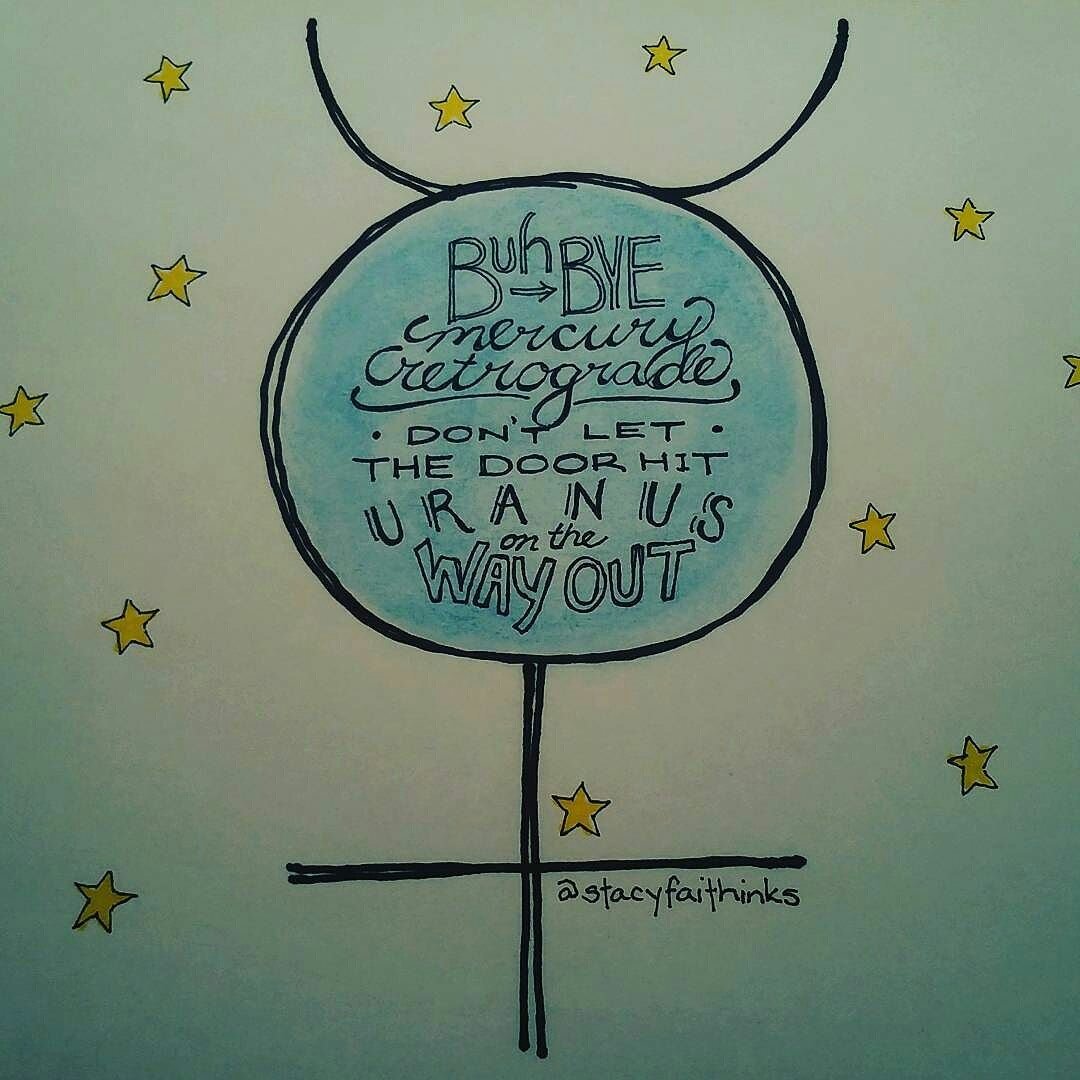 Buh→BYE
mercury
retrograde,
• DON'T LET •
THE DOOR HIT
URANUS
on the
WAY OUT
@stacyfaithinks